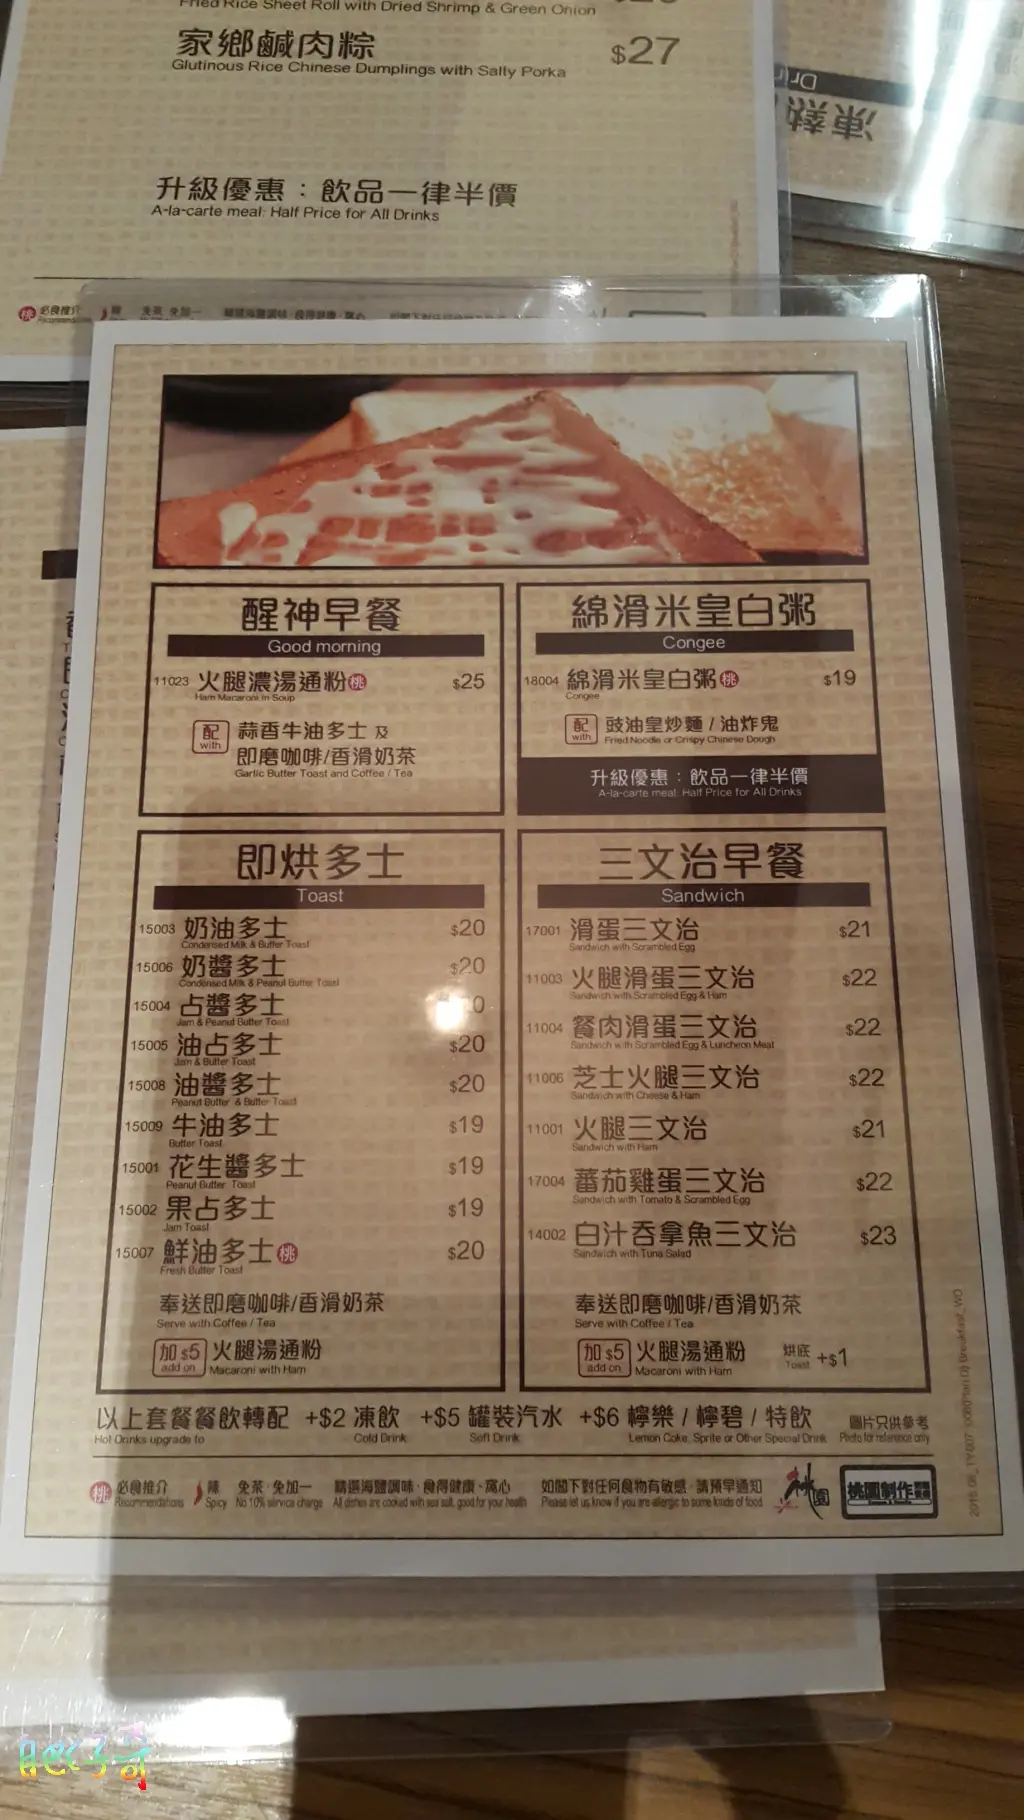 Fried Rice Sheet Roll with Dried Shrimp & Green Onion
家鄉鹹肉粽 $27
Glutinous Rice Chinese Dumplings with Salty Porka
升級優惠：飲品一律半價
A-la-carte meal: Half Price for All Drinks
凍熱
桃 必食推介 辣 免茶·免加一
醒神早餐
Good morning
11023 火腿濃湯通粉 桃 $25
Ham Macaroni in Soup
配 with 蒜香牛油多士 及
即磨咖啡/香滑奶茶
Garlic Butter Toast and Coffee / Tea
綿滑米皇白粥
Congee
18004 綿滑米皇白粥 桃 $19
Congee
配 with 豉油皇炒麵 / 油炸鬼
Fried Noodle or Crispy Chinese Dough
升級優惠：飲品一律半價
A-la-carte meal: Half Price for All Drinks
即烘多士
Toast
15003 奶油多士 $20
Condensed Milk & Butter Toast
15006 奶醬多士 $20
Condensed Milk & Peanut Butter Toast
15004 占醬多士 0
Jam & Peanut Butter Toast
15005 油占多士 $20
Jam & Butter Toast
15008 油醬多士 $20
Peanut Butter & Butter Toast
15009 牛油多士 $19
Butter Toast
15001 花生醬多士 $19
Peanut Butter Toast
15002 果占多士 $19
Jam Toast
15007 鮮油多士 桃 $20
Fresh Butter Toast
奉送即磨咖啡/香滑奶茶
Serve with Coffee / Tea
加 $5 add on 火腿湯通粉
Macaroni with Ham
三文治早餐
Sandwich
17001 滑蛋三文治 $21
Sandwich with Scrambled Egg
11003 火腿滑蛋三文治 $22
Sandwich with Scrambled Egg & Ham
11004 餐肉滑蛋三文治 $22
Sandwich with Scrambled Egg & Luncheon Meat
11006 芝士火腿三文治 $22
Sandwich with Cheese & Ham
11001 火腿三文治 $21
Sandwich with Ham
17004 蕃茄雞蛋三文治 $22
Sandwich with Tomato & Scrambled Egg
14002 白汁吞拿魚三文治 $23
Sandwich with Tuna Salad
奉送即磨咖啡/香滑奶茶
Serve with Coffee / Tea
加 $5 add on 火腿湯通粉 烘底 +$1
Macaroni with Ham Toast
以上套餐餐飲轉配 +$2 凍飲 +$5 罐裝汽水 +$6 檸樂 / 檸碧 / 特飲 圖片只供參考
Hot Drinks upgrade to Cold Drink Soft Drink Lemon Coke, Sprite or Other Special Drink Photo for reference only
桃 必食推介 辣 免茶·免加一 精選海鹽調味·食得健康·窩心 如閣下對任何食物有敏感·請預早通知 桃園 桃園創作
Recommendations Spicy No 10% service charge All dishes are cooked with sea salt, good for your health Please let us know if you are allergic to some kinds of food
肥仔哥